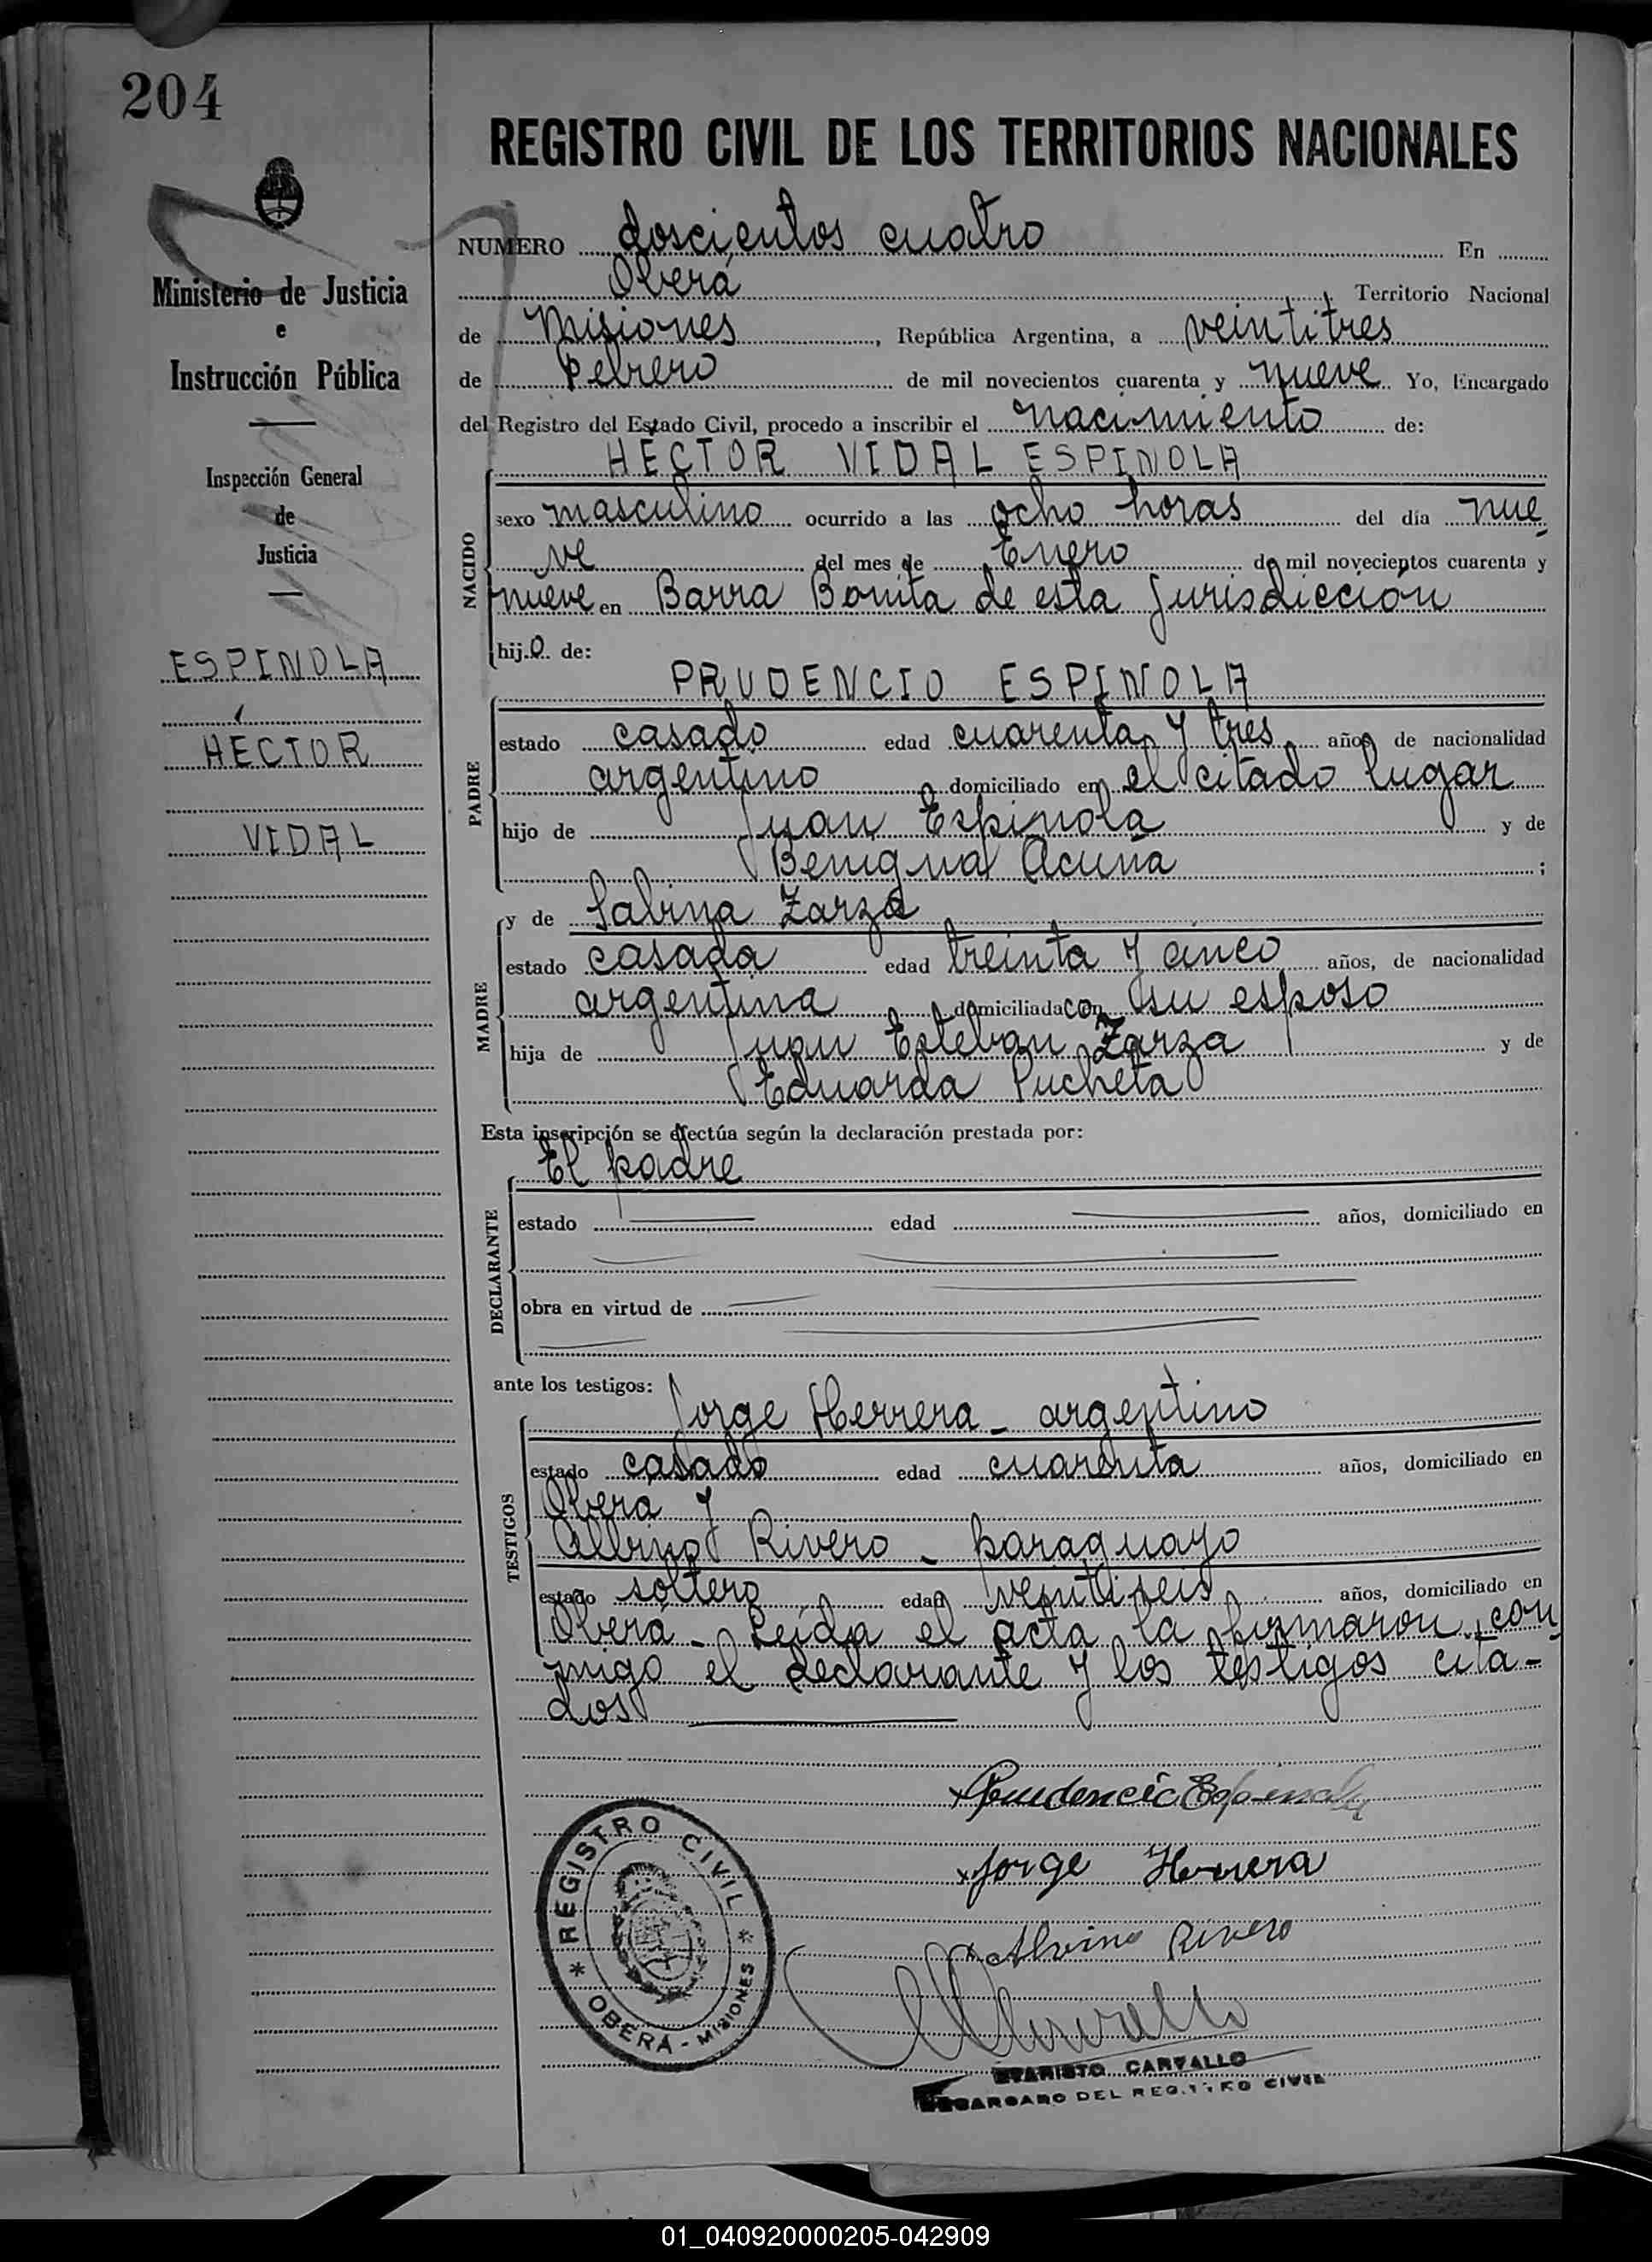 204
Ministerio de Justicia
e
Instrucción Pública
Inspección General
de
Justicia
ESPINOLA
HÉCTOR
VIDAL
REGISTRO CIVIL DE LOS TERRITORIOS NACIONALES
NUMERO doscientos cuatro En
Oberá Territorio Nacional
de Misiones, República Argentina, a veintitres
de Febrero de mil novecientos cuarenta y nueve Yo, Encargado
del Registro del Estado Civil, procedo a inscribir el nacimiento de:
HÉCTOR VIDAL ESPINOLA
NACIDO
sexo masculino ocurrido a las ocho horas del día nue
ve del mes de Enero de mil novecientos cuarenta y
nueve en Barra Bonita de esta Jurisdicción
hijo de:
PRUDENCIO ESPINOLA
PADRE
estado casado edad cuarenta y tres años de nacionalidad
argentino domiciliado en el citado lugar
hijo de Juan Espinola y de
Benigna Acuña ;
y de Sabina Zarza
MADRE
estado casada edad treinta y cinco años, de nacionalidad
argentina domiciliada con su esposo
hija de Juan Esteban Zarza y de
Eduarda Pucheta
Esta inscripción se efectúa según la declaración prestada por:
El padre
DECLARANTE
estado edad años, domiciliado en
obra en virtud de
ante los testigos:
Jorge Herrera - argentino
TESTIGOS
estado casado edad cuarenta años, domiciliado en
Oberá y
Albino Rivero - paraguayo
estado soltero edad veintiseis años, domiciliado en
Oberá - Leída el acta la firmaron con
migo el declarante y los testigos cita-
dos
Prudencio Espinola
Jorge Herrera
Alvino Rivero
REGISTRO CIVIL
OBERÁ - MISIONES
EVARISTO CARVALLO
ENCARGADO DEL REGISTRO CIVIL
01_040920000205-042909